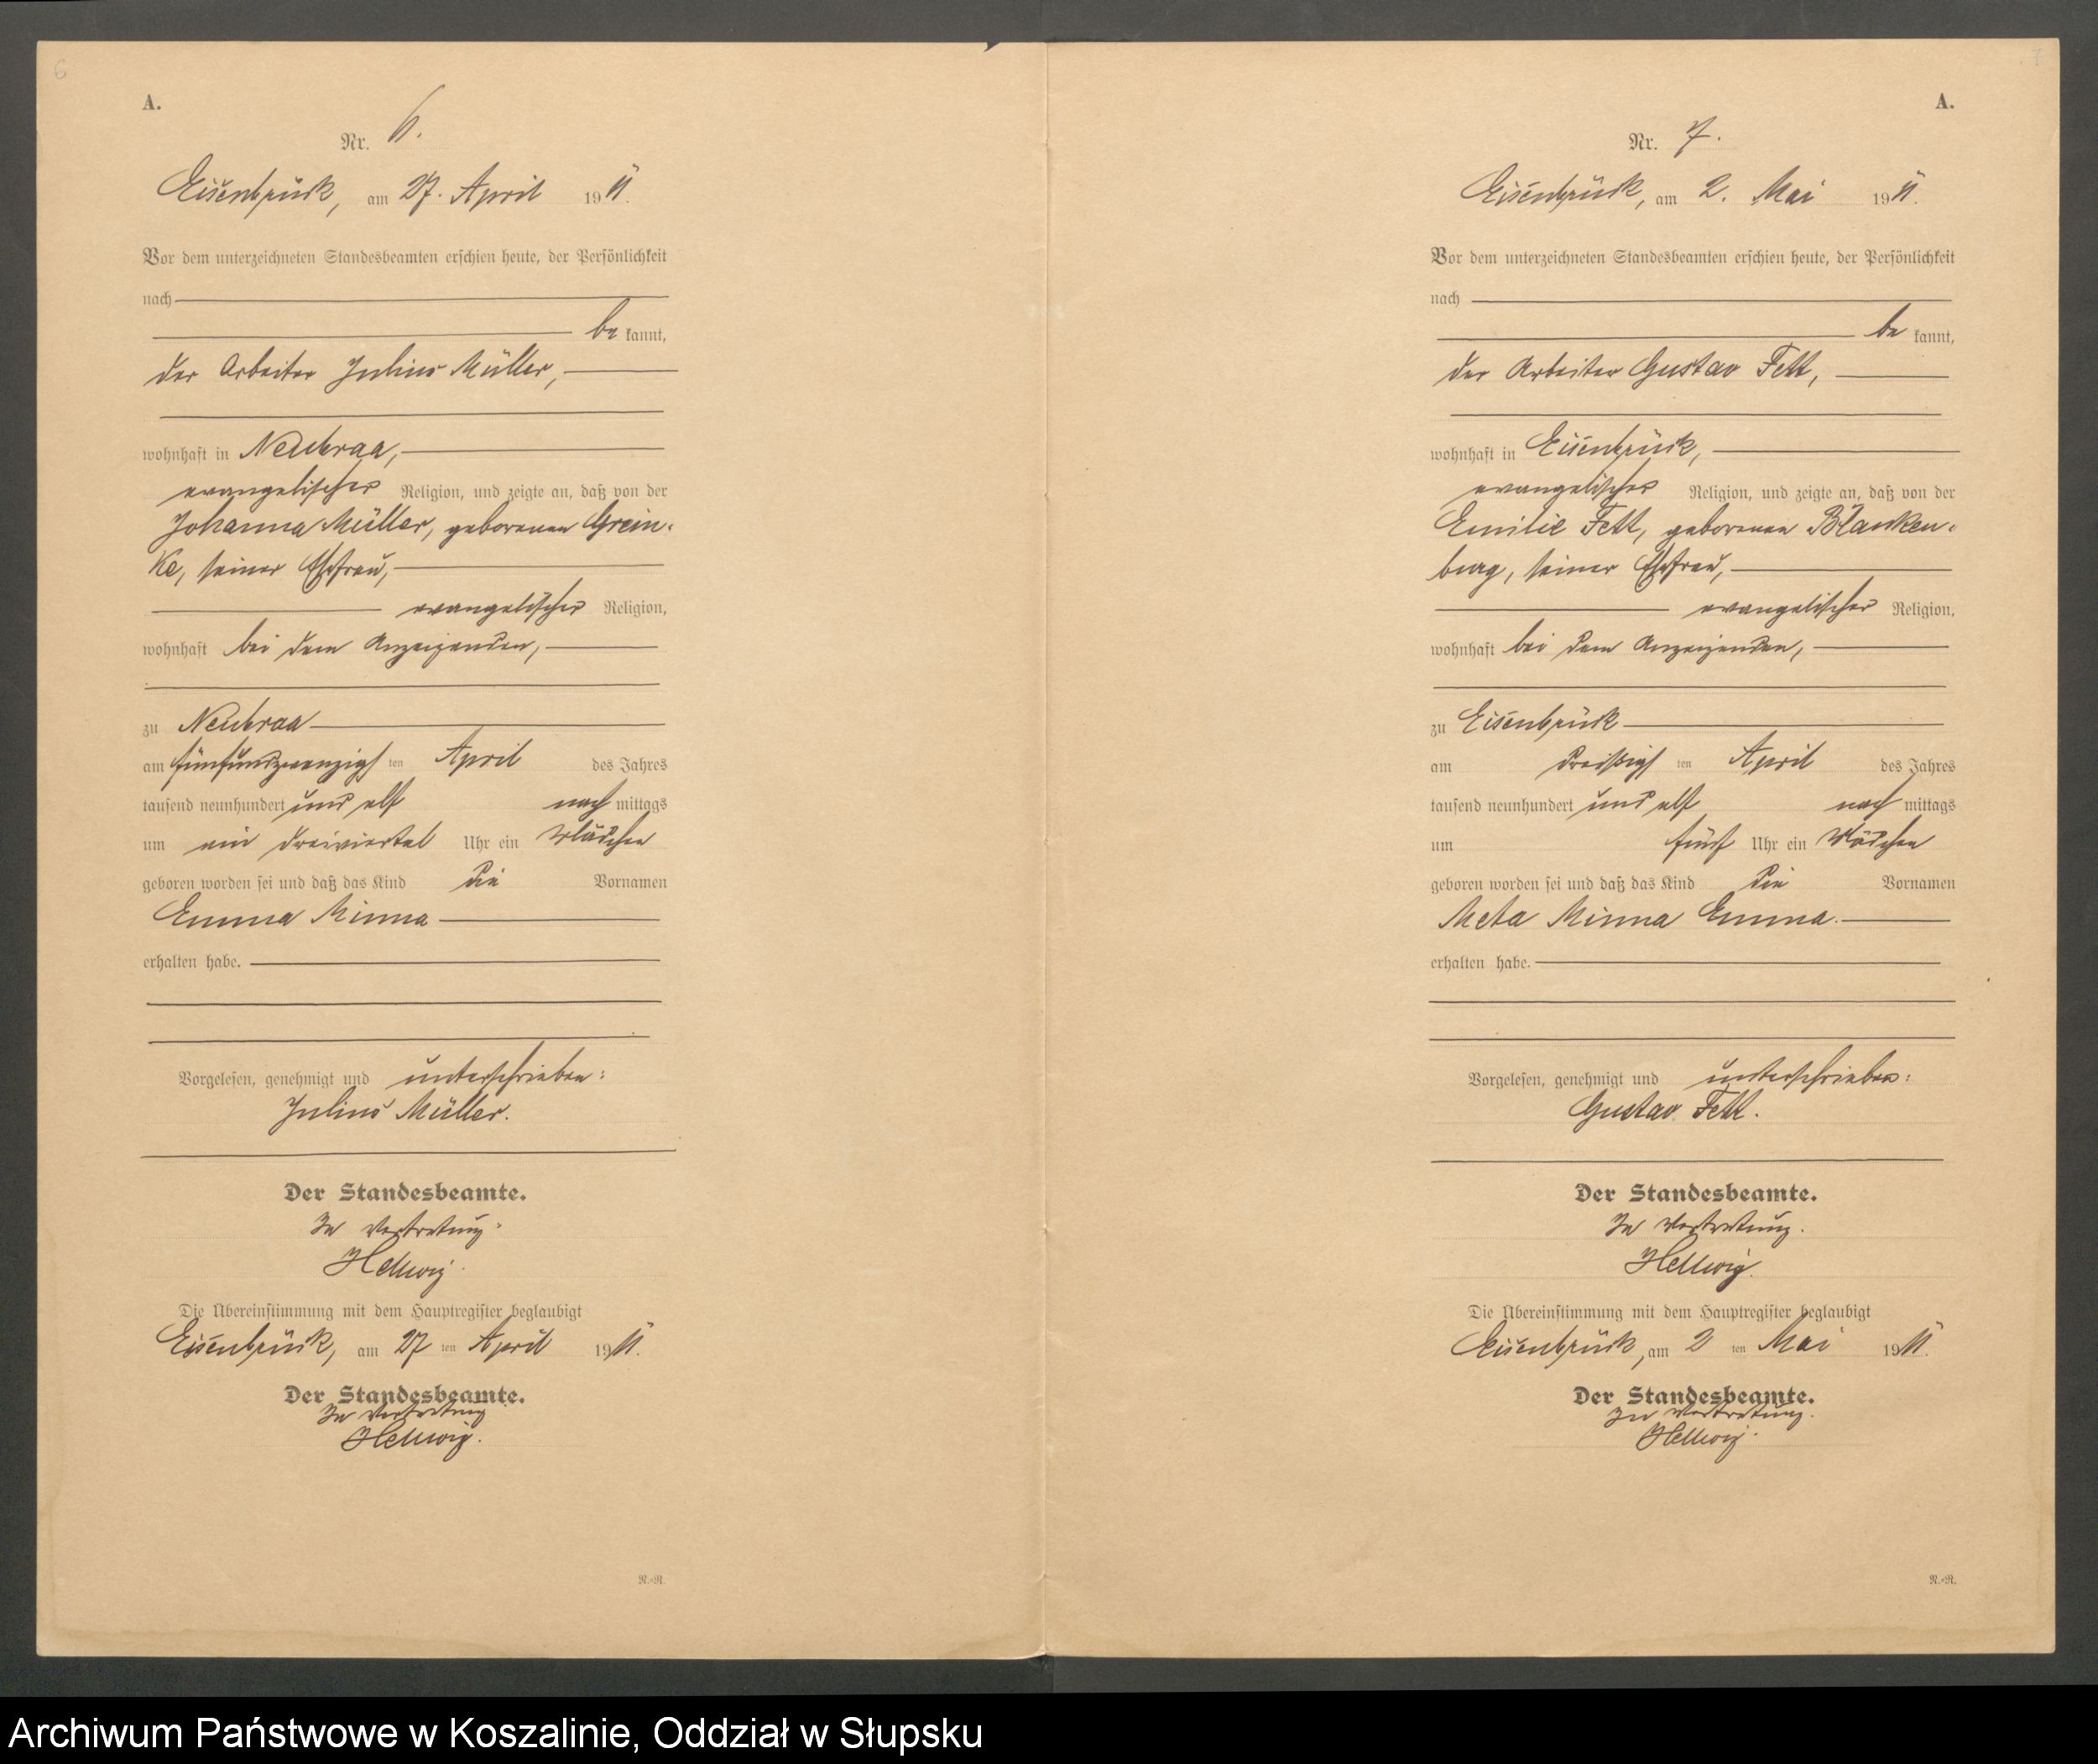 6
A.
Nr. 6.
Eisenbrück, am 27. April 1911.
Vor dem unterzeichneten Standesbeamten erschien heute, der Persönlichkeit
nach
be kannt,
der Arbeiter Julius Müller,
wohnhaft in Neubraa,
evangelischer Religion, und zeigte an, daß von der
Johanna Müller, geborenen Grein-
ke, seiner Ehefrau,
evangelischer Religion,
wohnhaft bei dem Anzeigenden,
zu Neubraa
am fünfundzwanzigsten April des Jahres
tausend neunhundert und elf nachmittags
um ein dreiviertel Uhr ein Mädchen
geboren worden sei und daß das Kind die Vornamen
Emma Minna
erhalten habe.
Vorgelesen, genehmigt und unterschrieben:
Julius Müller.
Der Standesbeamte.
In Vertretung.
Hellwig.
Die Übereinstimmung mit dem Hauptregister beglaubigt
Eisenbrück, am 27ten April 1911.
Der Standesbeamte.
In Vertretung
Hellwig.
R.=R.
7
A.
Nr. 7.
Eisenbrück, am 2. Mai 1911.
Vor dem unterzeichneten Standesbeamten erschien heute, der Persönlichkeit
nach
be kannt,
der Arbeiter Gustav Fett,
wohnhaft in Eisenbrück,
evangelischer Religion, und zeigte an, daß von der
Emilie Fett, geborenen Blanken-
burg, seiner Ehefrau,
evangelischer Religion,
wohnhaft bei dem Anzeigenden,
zu Eisenbrück
am dreißigsten April des Jahres
tausend neunhundert und elf nachmittags
um fünf Uhr ein Mädchen
geboren worden sei und daß das Kind die Vornamen
Meta Minna Emma.
erhalten habe.
Vorgelesen, genehmigt und unterschrieben:
Gustav Fett.
Der Standesbeamte.
In Vertretung.
Hellwig.
Die Übereinstimmung mit dem Hauptregister beglaubigt
Eisenbrück, am 2ten Mai 1911.
Der Standesbeamte.
In Vertretung.
Hellwig.
R.=R.
Archiwum Państwowe w Koszalinie, Oddział w Słupsku